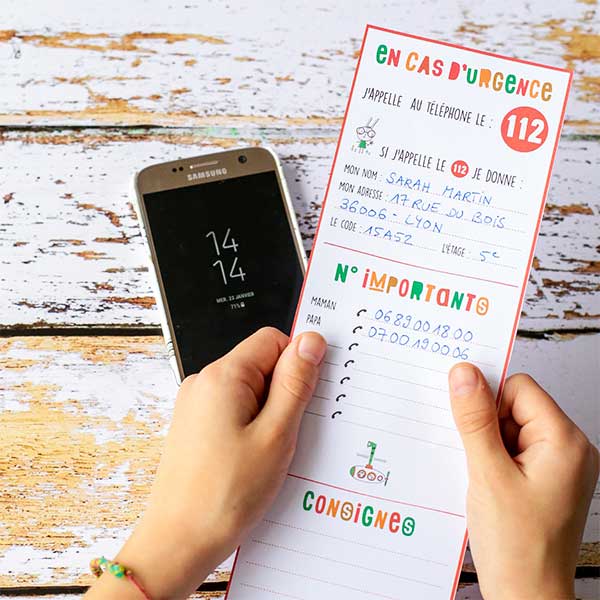 SAMSUNG
14
14
MER. 23 JANVIER
71%
EN CAS D'URGENCE
J'APPELLE AU TÉLÉPHONE LE : 112
SI J'APPELLE LE 112 JE DONNE :
MON NOM : SARAH MARTIN
MON ADRESSE : 17 RUE DU BOIS
36006 - LYON
LE CODE : 15A52 L'ÉTAGE : 5e
N° IMPORTANTS
MAMAN 06 89 00 18 00
PAPA 07 00 19 00 06
CONSIGNES